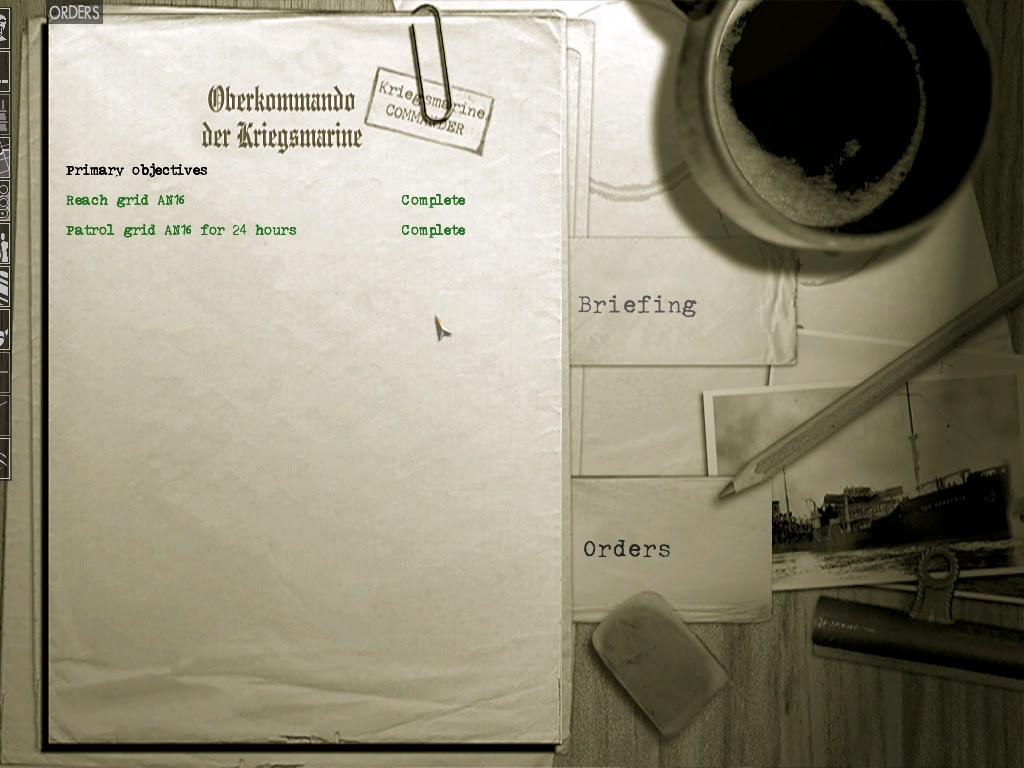 ORDERS
Oberkommando
der Kriegsmarine
Kriegsmarine
COMMANDER
Primary objectives
Reach grid AN16 Complete
Patrol grid AN16 for 24 hours Complete
Briefing
Orders